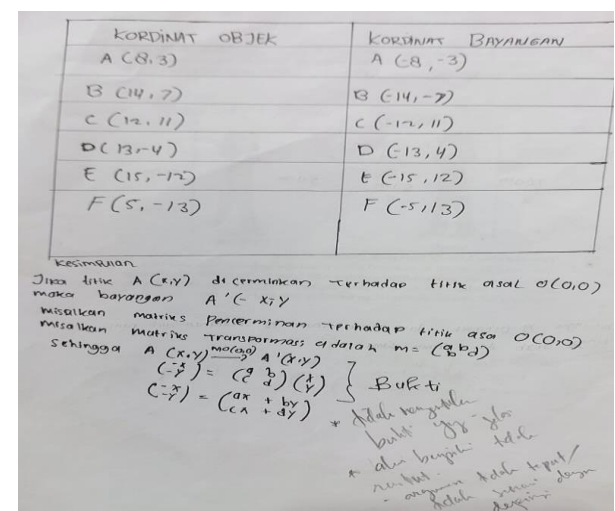 KORDINAT OBJEK KORDINAT BAYANGAN
A (8,3) A (-8,-3)
B (14,7) B (-14,-7)
C (12,11) C (-12,11)
D (13,-4) D (-13,4)
E (15,-12) E (-15,12)
F (5,-13) F (-5,13)
Kesimpulan
Jika titik A (x,y) dicerminkan terhadap titik asal O(0,0)
maka bayangan A'(-x,y
misalkan matriks Pencerminan terhadap titik asal O(0,0)
misalkan matriks Transformasi adalah m = (a b d)
sehingga A (x,y) A'(x,y)
(-x -y) = (a b c d) (x y) } Bukti
(-x -y) = (ax + by cx + dy)
* tidak
bukti yg jelas
* alur berpikir tidak
runtut.
- argumen tidak tepat/
tidak sesuai dengan